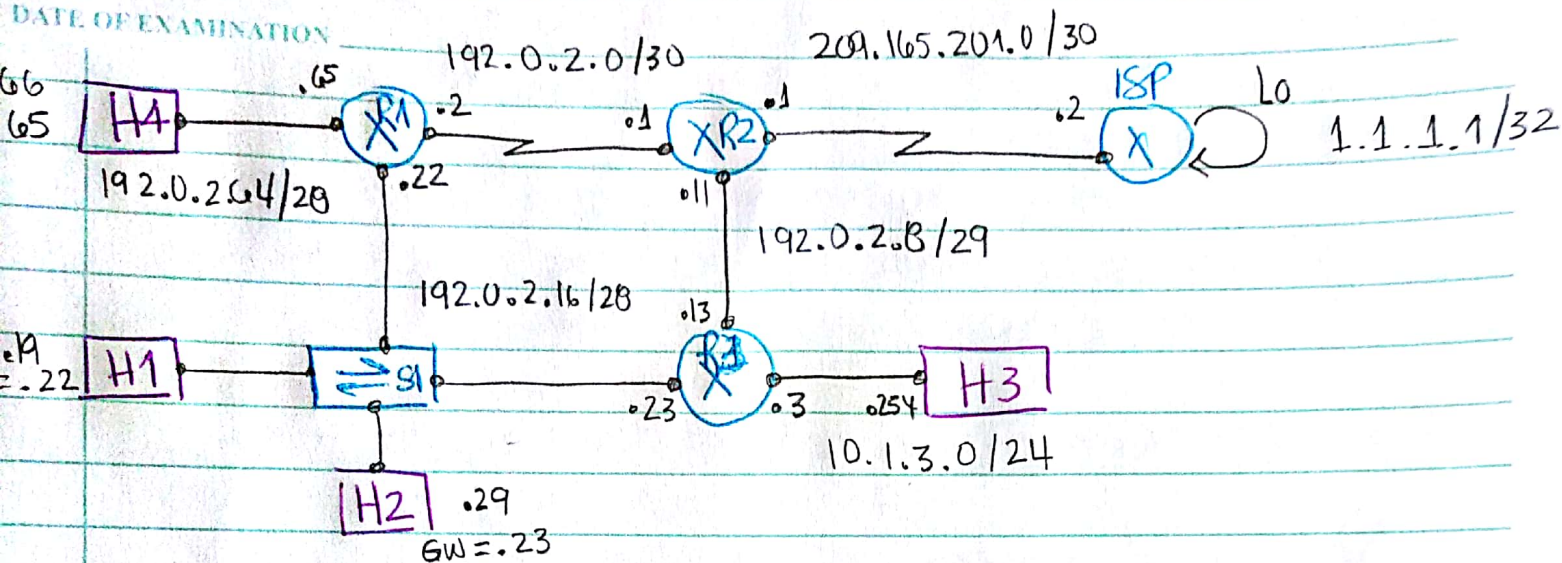 DATE OF EXAMINATION
192.0.2.0/30
209.165.201.0/30
66
65
H4
.65
R1
.2
.1
R2
.1
.2
ISP
Lo
1.1.1.1/32
192.0.2.64/28
.22
.11
192.0.2.8/29
192.0.2.16/28
.13
.19
=.22
H1
S1
.23
R3
.3
.254
H3
10.1.3.0/24
H2
.29
GW=.23